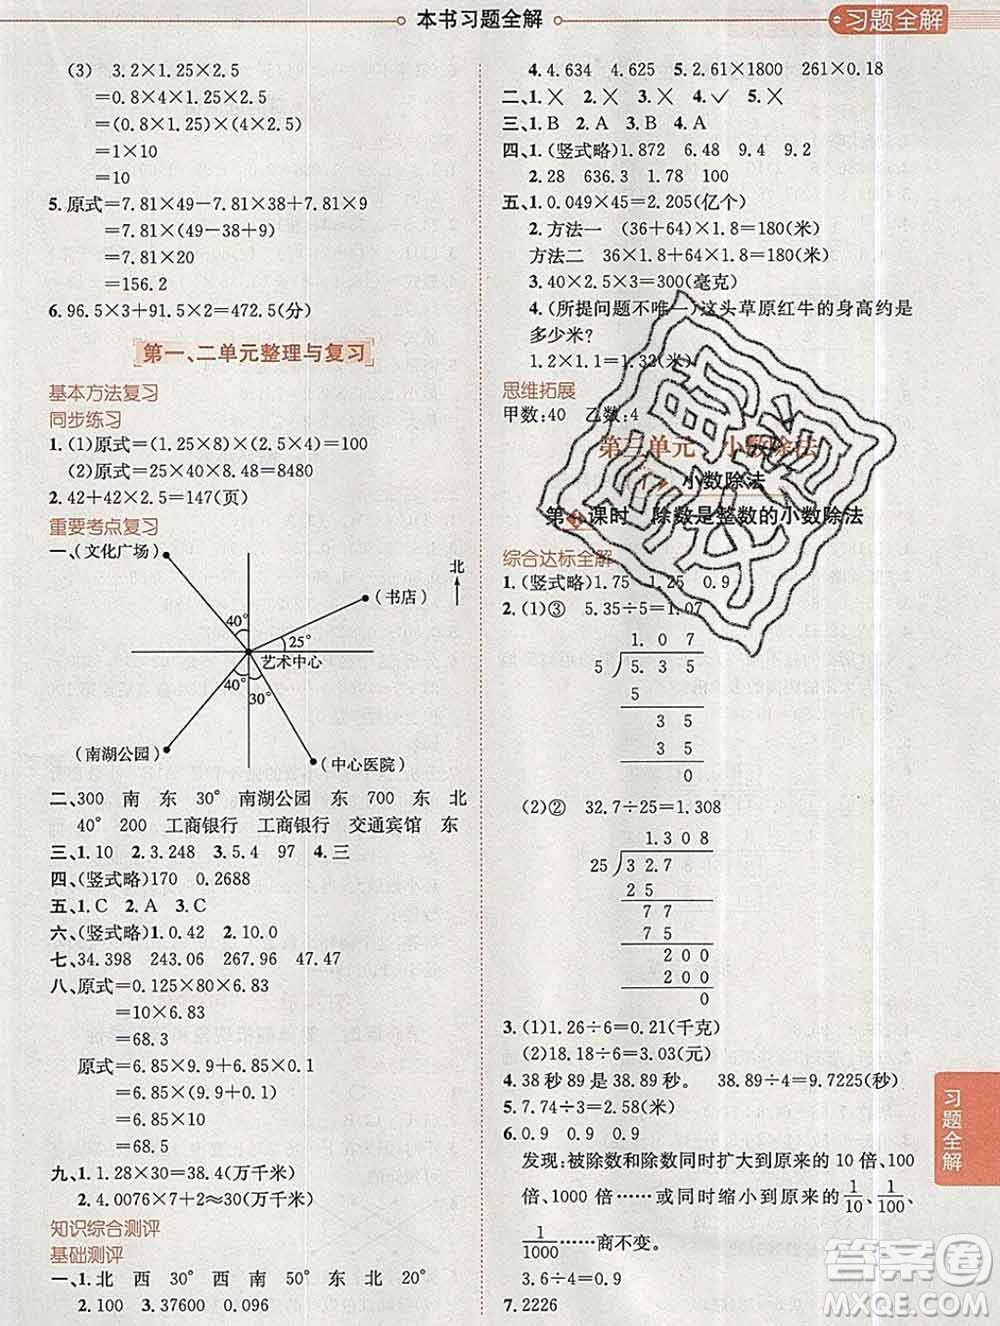 本书习题全解
习题全解
(3) 3.2×1.25×2.5
=0.8×4×1.25×2.5
=(0.8×1.25)×(4×2.5)
=1×10
=10
5.原式=7.81×49-7.81×38+7.81×9
=7.81×(49-38+9)
=7.81×20
=156.2
6.96.5×3+91.5×2=472.5(分)
第一、二单元整理与复习
基本方法复习
同步练习
1.(1)原式=(1.25×8)×(2.5×4)=100
(2)原式=25×40×8.48=8480
2.42+42×2.5=147(页)
重要考点复习
一、(文化广场)
北
(书店)
40°
25°
艺术中心
40°
30°
(南湖公园)
(中心医院)
二、300 南 东 30° 南湖公园 东 700 东 北
40° 200 工商银行 工商银行 交通宾馆 东
三、1.10 2.3.248 3.5.4 97 4.三
四、(竖式略)170 0.2688
五、1.C 2.A 3.C
六、(竖式略)1.0.42 2.10.0
七、34.398 243.06 267.96 47.47
八、原式=0.125×80×6.83
=10×6.83
=68.3
原式=6.85×9.9+6.85×0.1
=6.85×(9.9+0.1)
=6.85×10
=68.5
九、1.1.28×30=38.4(万千米)
2.4.0076×7+2≈30(万千米)
知识综合测评
基础测评
一、1.北 西 30° 西 南 50° 东 北 20°
2.100 3.37600 0.096
4.4.634 4.625 5.2.61×1800 261×0.18
二、1.× 2.× 3.× 4.✓ 5.×
三、1.B 2.A 3.B 4.A
四、1.(竖式略)1.872 6.48 9.4 9.2
2.28 636.3 1.78 100
五、1.0.049×45=2.205(亿个)
2.方法一 (36+64)×1.8=180(米)
方法二 36×1.8+64×1.8=180(米)
3.40×2.5×3=300(毫克)
4.(所提问题不唯一)这头草原红牛的身高约是
多少米?
1.2×1.1=1.32(米)
思维拓展
甲数:40 乙数:4
第三单元 小数除法
小数除法
第1课时 除数是整数的小数除法
综合达标全解
1.(竖式略)1.75 1.25 0.9
2.(1)③ 5.35÷5=1.07
1.0 7
5 5.3 5
5
3 5
3 5
0
(2)② 32.7÷25=1.308
1.3 0 8
25 3 2.7
2 5
7 7
7 5
2 0 0
2 0 0
0
3.(1)1.26÷6=0.21(千克)
(2)18.18÷6=3.03(元)
4.38秒89是38.89秒。 38.89÷4=9.7225(秒)
5.7.74÷3=2.58(米)
6.0.9 0.9 0.9
发现:被除数和除数同时扩大到原来的10倍、100
倍、1000倍……或同时缩小到原来的1/10、1/100、
1/1000……商不变。
3.6÷4=0.9
7.2226
习题全解
答案圈
MXQE.COM